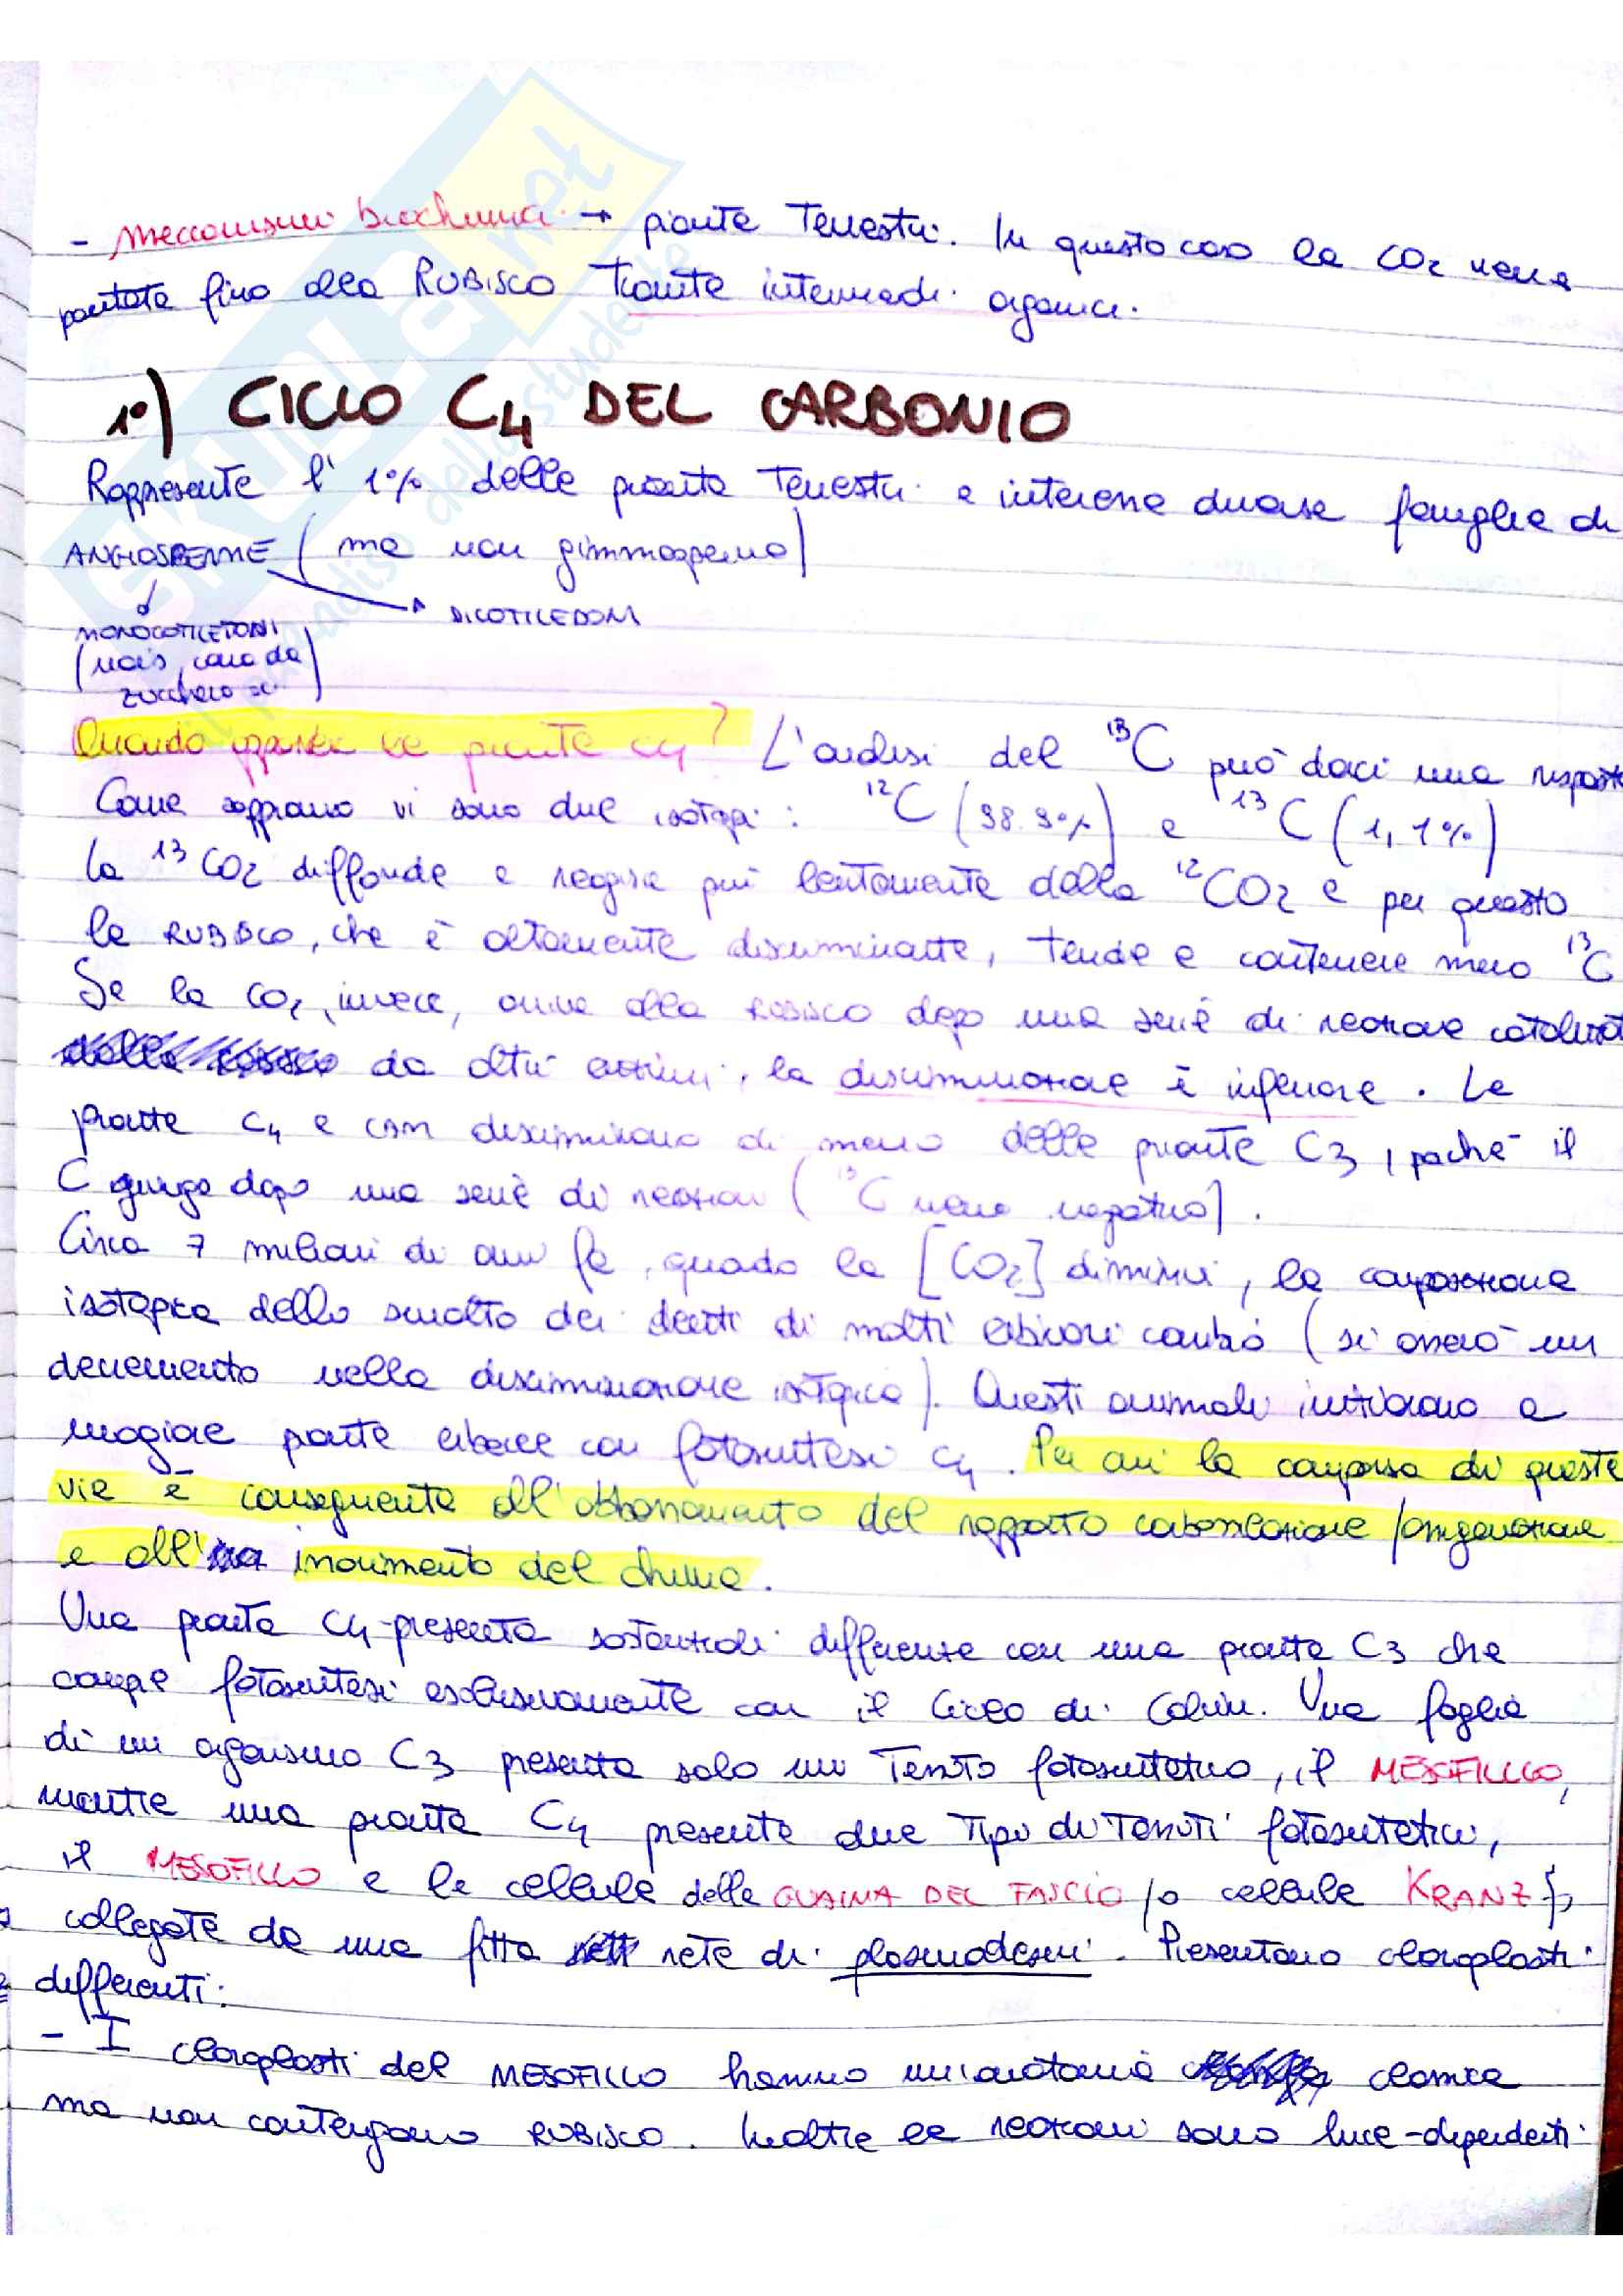 - Meccanismi biochimici → piante Terrestri. In questo caso la CO2 viene
portata fino alla RUBISCO Tramite intermedi organici.
1°) CICLO C4 DEL CARBONIO
Rappresente l' 1% delle piante Terrestri e interessa diverse famiglie di
ANGIOSPERME (ma non gimnosperme)
DICOTILEDONI
MONOCOTILETONI
(mais, canna da
zucchero
Quando apparse le piante C4? L'analisi del 13C può darci una risposta
Come sappiamo vi sono due isotopi: 12C (98.9%) e 13C (1,1%)
la 13CO2 diffonde e reagisce più lentamente della 12CO2 e per questo
la RUBISCO, che è altamente discriminante, tende a contenere meno 13C
Se la CO2, invece, arriva alla RUBISCO dopo una serie di reazione catalizzat
da altri enzimi, la discriminazione è inferiore. Le
piante C4 e CAM discriminano di meno delle piante C3, perché il
C giunge dopo una serie di reazioni (13C meno negativo).
Circa 7 milioni di anni fa, quando la [CO2] diminuì, la composizione
isotopica dello smalto dei denti di molti erbivori cambiò (si osservò un
decremento nella discriminazione isotopica). Questi animali iniziarono a
mangiare piante erbacee con fotosintesi C4. Per cui la comparsa di queste
vie è conseguente all'abbassamento del rapporto carbossilazione/ossigenazione
e all' inaridimento del clima.
Una pianta C4 presenta sostanziali differenze con una pianta C3 che
compie fotosintesi esclusivamente con il Ciclo di Calvin. Una foglia
di un organismo C3 presenta solo un Tessuto fotosintetico, il MESOFILLO,
mentre una pianta C4 presenta due Tipi di Tessuti fotosintetici,
il MESOFILLO e le cellule della GUAINA DEL FASCIO (o cellule KRANZ),
collegate da una fitta rete di plasmodesmi. Presentano cloroplasti
differenti:
- I cloroplasti del MESOFILLO hanno un'anatomia classica
ma non contengono RUBISCO. Inoltre le reazioni sono luce-dipendenti